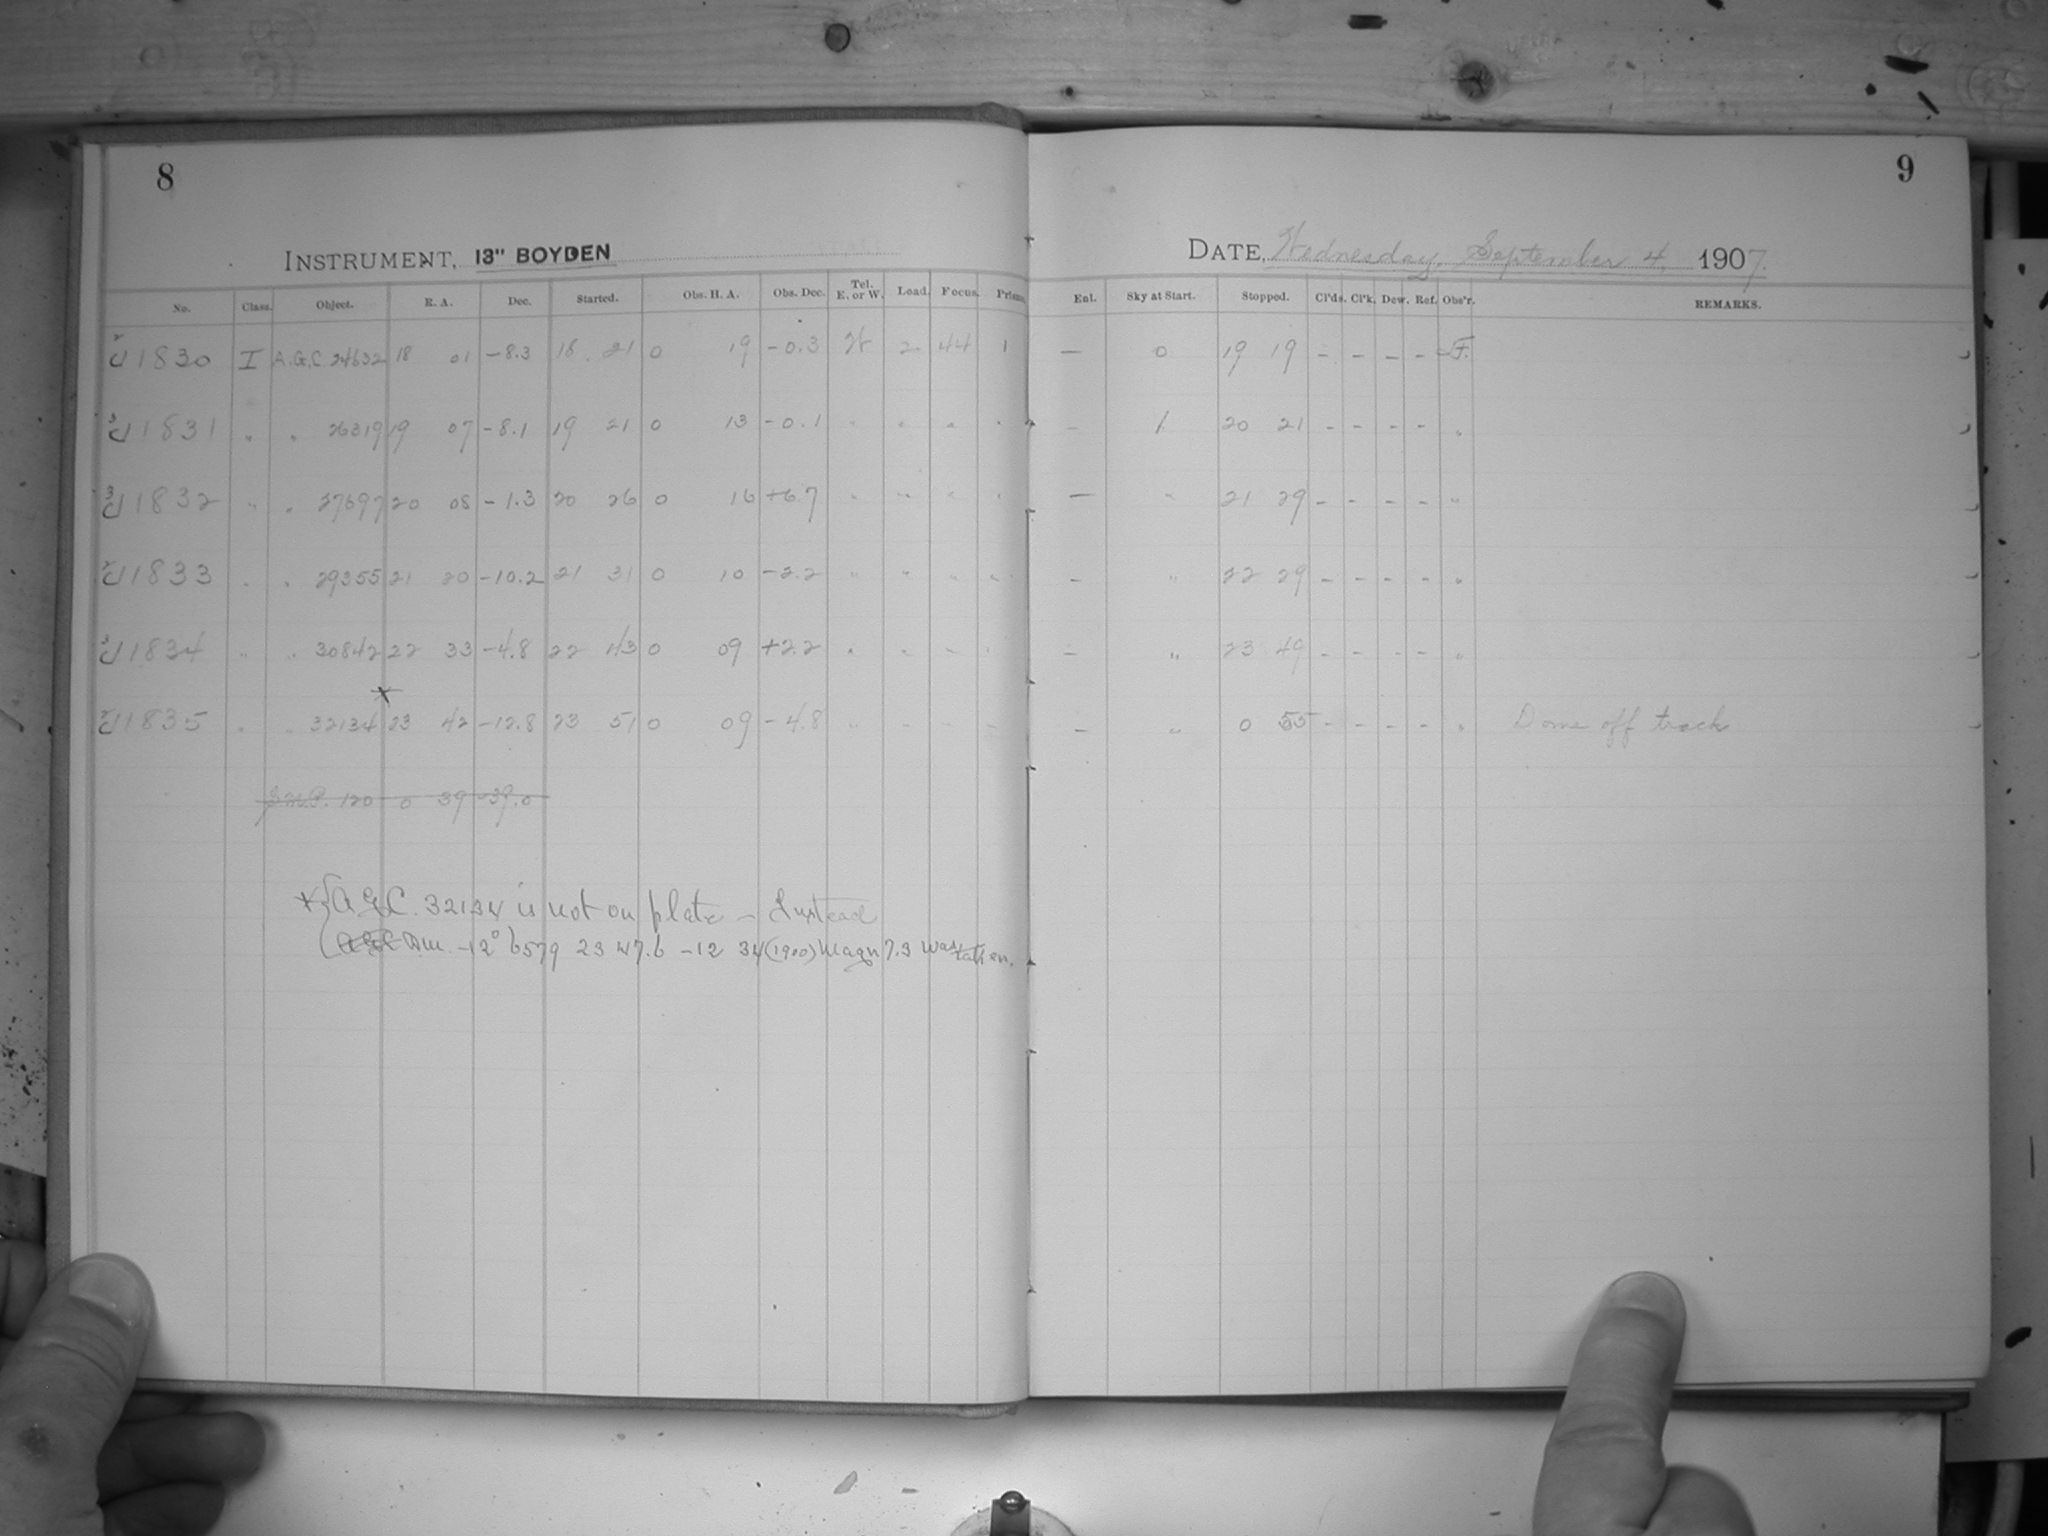 8
INSTRUMENT, 13" BOYDEN
No. Class. Object. R. A. Dec. Started. Obs. H. A. Obs. Dec. Tel. E. or W. Load. Focus. Prisms.
1830 I A.G.C. 24632 18 01 -8.3 18 21 0 19 -0.3 W 2 44 1
1831 " " 26319 19 07 -8.1 19 21 0 13 -0.1 " " " "
1832 " " 27697 20 08 -1.3 20 26 0 16 +6.7 " " " "
1833 " " 29355 21 20 -10.2 21 31 0 10 -2.2 " " " "
1834 " " 30842 22 33 -4.8 22 43 0 09 +2.2 " " " "
*
1835 " " 32134 23 42 -12.8 23 51 0 09 -4.8 " " " "
120 0 39 -39.0
* A.G.C. 32134 is not on plate - Instead
DM. -12° 6579 23 47.6 -12 34 (1900) Magn 7.3 was taken.
9
DATE, Wednesday, September 4, 1907.
Enl. Sky at Start. Stopped. Cl'ds. Cl'k. Dew. Ref. Obs'r. REMARKS.
— 0 19 19 - - - - F.
- 1 20 21 - - - - "
— " 21 29 - - - - "
- " 22 29 - - - - "
- " 23 49 - - - - "
- " 0 55 - - - - " Dome off track